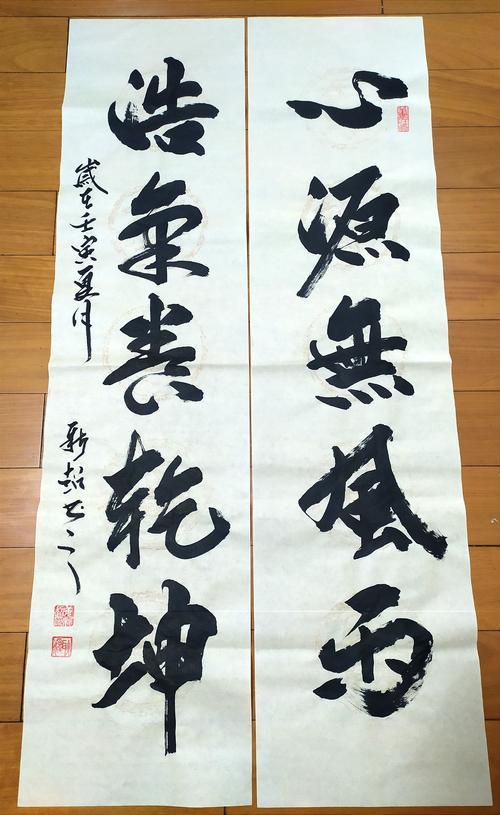 心源無風雨
浩氣養乾坤
歲在壬寅夏月
超書